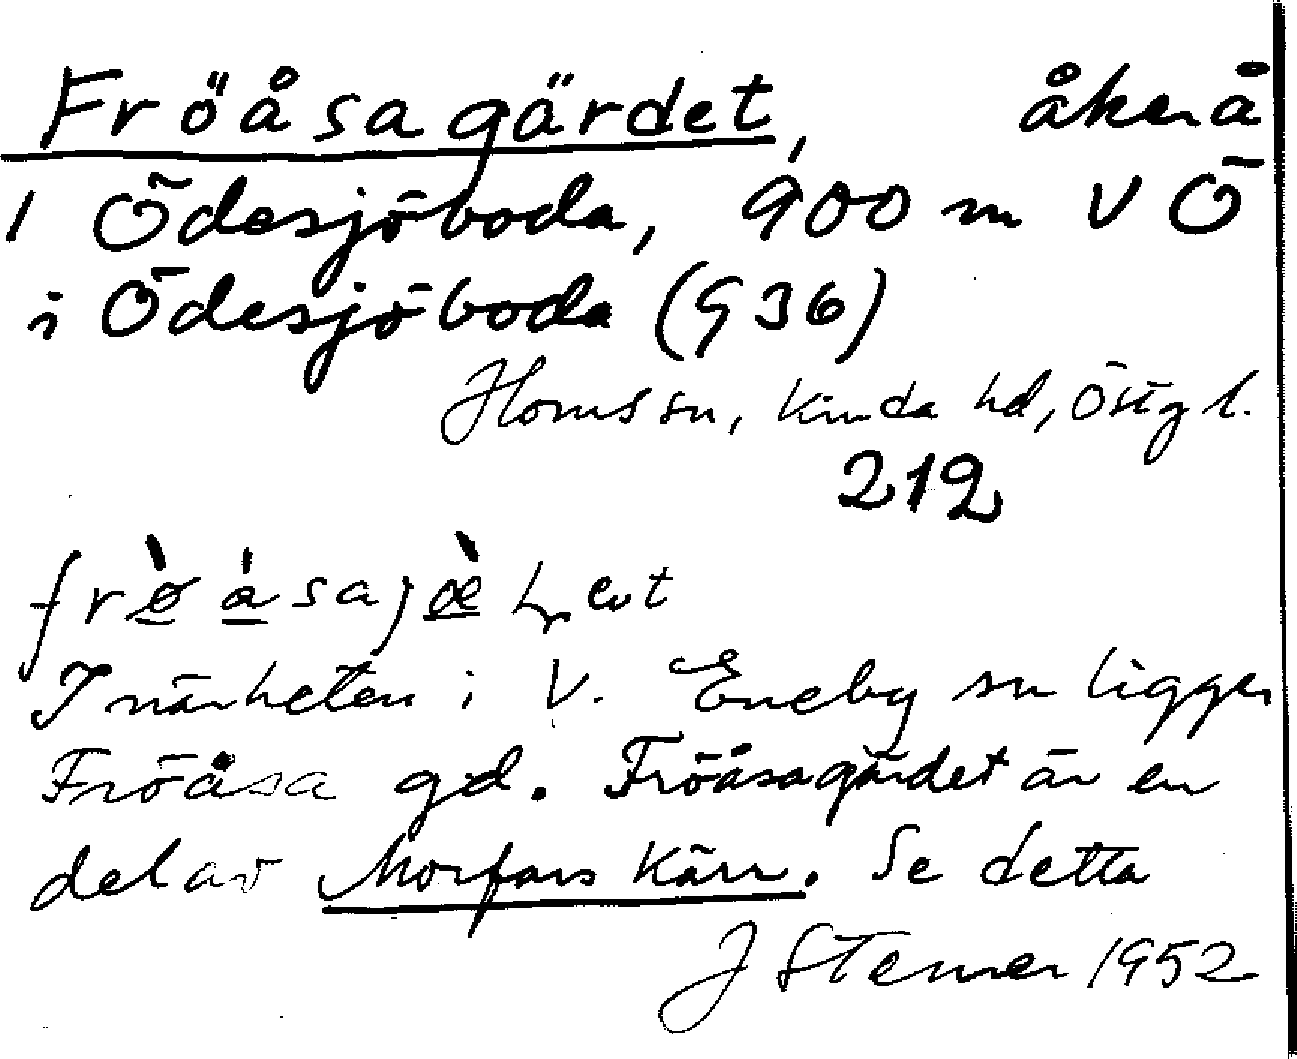 Fröåsagärdet, åker å
1 Ödesjöboda, 900 m V Ö
i Ödesjöboda (936)
Horns sn, Kinda hd, Östgl.
212
I närheten i V. Eneby sn ligger
Fröåsa gd. Fröåsagärdet är en
del av Morfars Kärr. Se detta
J Stenner 1952